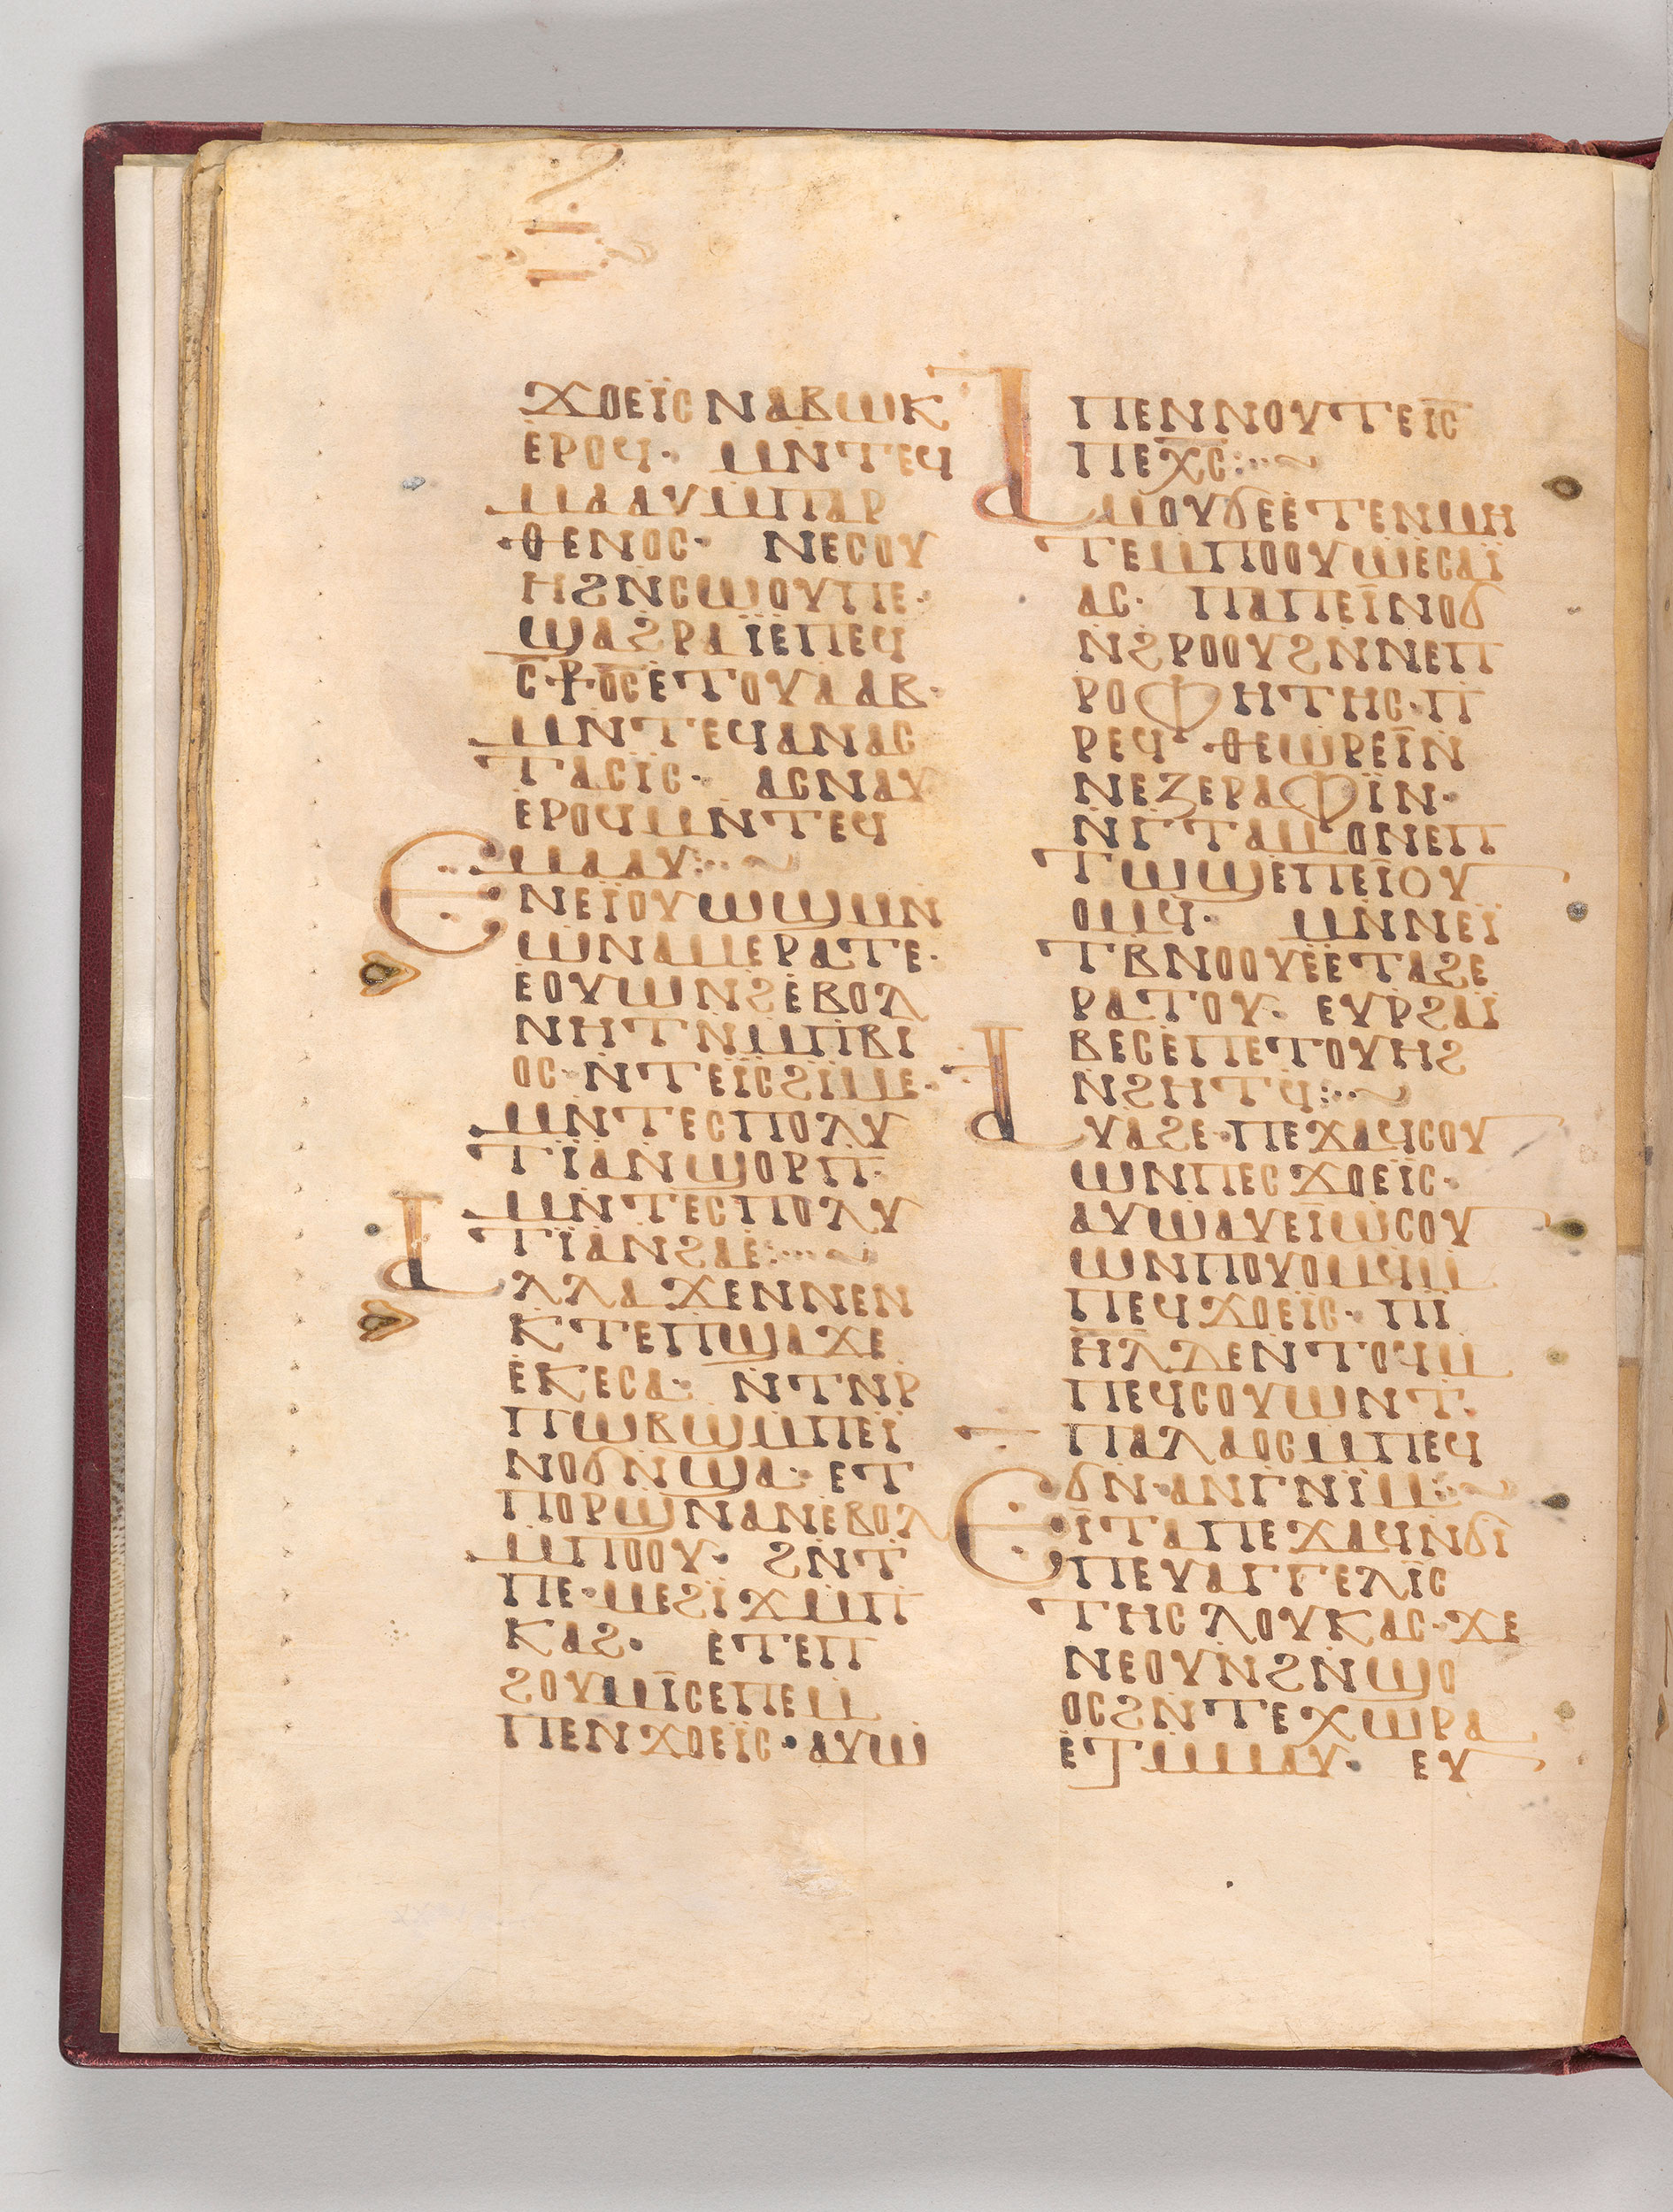 ϫⲟⲉⲓ̈ⲥⲛⲁⲃⲱⲕ
ⲉ̇ⲣⲟϥ· ⲙⲛⲧⲉϥ
ⲙⲁⲁⲩⲙ̇ⲡⲁⲣ
ⲑⲉⲛⲟⲥ· ⲛⲉⲥⲟⲩ
ⲏϩⲛ̇ⲥⲱⲟⲩⲡⲉ·
ϣⲁϩⲣⲁⲓ̈ⲉ̇ⲡⲉϥ
ⲥ̅ⲣ̅ⲟ̅ⲥ̅ⲉⲧⲟⲩⲁⲁⲃ·
ⲙⲛⲧⲉϥⲁⲛⲁⲥ
ⲧⲁⲥⲓ̈ⲥ· ⲁⲥⲛⲁⲩ
ⲉ̇ⲣⲟϥⲙⲛⲧⲉϥ
ⲙⲁⲁⲩ:··~
Ⲉⲛⲉⲓ̈ⲟⲩⲱϣⲙⲛ
ⲱ̇ⲛⲁⲙⲉⲣⲁⲧⲉ·
ⲉⲟⲩⲱⲛϩⲉ̇ⲃⲟⲗ
ⲛⲏⲧⲛ̇ⲙ̇ⲡⲃⲓ
ⲟⲥ·ⲛ̇ⲧⲉⲓ̈ⲥϩⲓ̈ⲙⲉ·
ⲙⲛⲧⲉⲥⲡⲟⲗⲩ
ⲧⲓ̈ⲁⲛϣⲟⲣⲡ·
ⲙⲛⲧⲉⲥⲡⲟⲗⲩ
ⲧⲓ̈ⲁⲛϩⲁⲉ̇:···~
Ⲁⲗⲗⲁϫⲉⲛⲛⲉⲛ
ⲕⲧⲉⲡϣⲁϫⲉ
ⲉ̇ⲕⲉⲥⲁ· ⲛ̇ⲧⲛⲣ
ⲡⲱⲃϣⲙ̇ⲡⲉⲓ̈
ⲛⲟϭⲛ̇ϣⲁ·ⲉⲧ
ⲡⲟⲣϣⲛⲁⲛⲉ̇ⲃⲟⲗ
ⲙ̇ⲡⲟⲟⲩ· ϩⲛ̇ⲧ
ⲡⲉ·ⲙⲉϩⲓ̈ϫⲙ̇ⲡ
ⲕⲁϩ· ⲉ̇ⲧⲉⲡ
ϩⲟⲩⲙⲓ̈ⲥⲉⲡⲉⲙ
ⲡⲉⲛϫⲟⲉⲓ̈ⲥ·ⲁⲩⲱ
ⲡⲉⲛⲛⲟⲩⲧⲉⲓ̅ⲥ̅
ⲡⲉⲭ̅ⲥ̅:··~
Ⲁⲙⲟⲩϭⲉⲉ̇ⲧⲉⲛⲙⲏ
ⲧⲉⲙ̇ⲡⲟⲟⲩⲱ̇ⲏⲥⲁⲓ̈
ⲁⲥ· ⲡⲁⲡⲉⲓ̈ⲛⲟϭ
ⲛ̇ϩⲣⲟⲟⲩϩⲛ̇ⲛⲉⲡ
ⲣⲟⲫⲏⲧⲏⲥ·ⲡ
ⲣⲉϥ·ⲑⲉⲱⲣⲉⲓ̈ⲛ̇
ⲛⲉⲍⲉⲣⲁⲫⲓ̈ⲛ·
ⲛⲅⲧⲁⲙⲟⲛⲉⲡ
ⲧⲱϣⲉⲡⲉⲓ̈ⲟⲩ
ⲟⲙϥ· ⲙⲛⲛⲉⲓ̈
ⲧⲃⲛⲟⲟⲩⲉ̇ⲉ̇ⲧⲁϩⲉ
ⲣⲁⲧⲟⲩ· ⲉⲩⲣϩⲁⲓ̈
ⲃⲉⲥⲉ̇ⲡⲉⲧⲟⲩⲏϩ
ⲛ̇ϩⲏⲧϥ:··~
Ⲁⲩⲁϩⲉ·ⲡⲉϫⲁϥⲥⲟⲩ
ⲱⲛⲡⲉϥϫⲟⲉⲓ̈ⲥ·
ⲁⲩⲱⲁⲩⲉⲓ̈ⲱⲥⲟⲩ
ⲱⲛⲡⲟⲩⲟⲙϥⲙ̇
ⲡⲉϥϫⲟⲉⲓ̈ⲥ· ⲡⲓ̅
ⲏ̅ⲗ̅ⲇⲉⲛⲧⲟϥⲙ
ⲡⲉϥⲥⲟⲩⲱⲛⲧ·
ⲡⲁⲗⲁⲟⲥⲙ̇ⲡⲉϥ
ϭⲛ·ⲁⲛⲅⲛⲓ̈ⲙ:~
Ⲉⲓ̈ⲧⲁⲡⲉϫⲁϥⲛ̇ϭⲓ
ⲡⲉⲩⲁⲅⲅⲉⲗⲓ̈ⲥ
ⲧⲏⲥⲗⲟⲩⲕⲁⲥ·ϫⲉ
ⲛⲉⲟⲩⲛ̇ϩⲛ̇ϣⲟ
ⲟⲥϩⲛ̇ⲧⲉⲭⲱⲣⲁ
ⲉ̇ⲧⲙ̇ⲙⲁⲩ· ⲉⲩ